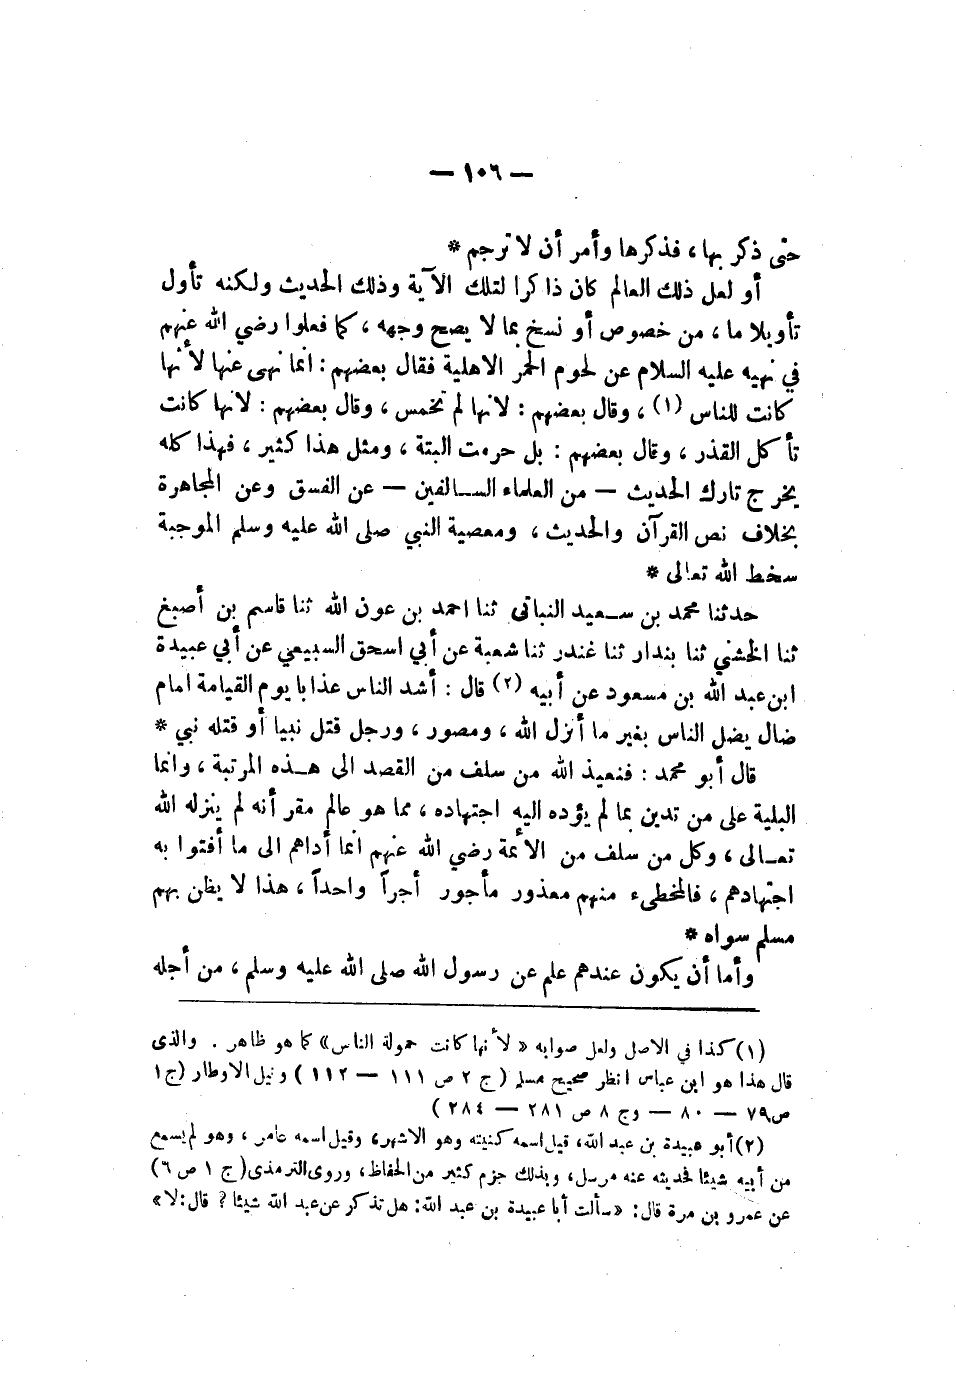 — ١٠٦ —
حتى ذكر بها ، فذكرها وأمر أن لا ترجم *
أو لعل ذلك العالم كان ذاكرا لتلك الآية وذلك الحديث ولكنه تأول
تأويلا ما ، من خصوص أو نسخ بما لا يصح وجهه ، كما فعلوا رضي الله عنهم
في نهيه عليه السلام عن لحوم الحمر الاهلية فقال بعضهم : انما نهى عنها لأنها
كانت للناس (١) ، وقال بعضهم : لانها لم تخمس ، وقال بعضهم : لانها كانت
تأكل القذر ، وقال بعضهم : بل حرمت البتة ، ومثل هذا كثير ، فهذا كله
يخرج تارك الحديث — من العلماء السالفين — عن الفسق وعن المجاهرة
بخلاف نص القرآن والحديث ، ومعصية النبي صلى الله عليه وسلم الموجبة
سخط الله تعالى *
حدثنا محمد بن سعيد النباتى ثنا احمد بن عون الله ثنا قاسم بن أصبغ
ثنا الخشني ثنا بندار ثنا غندر ثنا شعبة عن أبي اسحق السبيعي عن أبي عبيدة
ابن عبد الله بن مسعود عن أبيه (٢) قال : أشد الناس عذابا يوم القيامة امام
ضال يضل الناس بغير ما أنزل الله ، ومصور ، ورجل قتل نبيا أو قتله نبي *
قال أبو محمد : فنعيذ الله من سلف من القصد الى هذه المرتبة ، وانما
البلية على من تدين بما لم يؤده اليه اجتهاده ، مما هو عالم مقر أنه لم ينزله الله
تعالى ، وكل من سلف من الأئمة رضي الله عنهم انما أداهم الى ما أفتوا به
اجتهادهم ، فالمخطىء منهم معذور مأجور أجراً واحداً ، هذا لا يظن بهم
مسلم سواه *
وأما أن يكون عندهم علم عن رسول الله صلى الله عليه وسلم ، من أجله
(١) كذا في الاصل ولعل صوابه « لأنها كانت حمولة الناس » كما هو ظاهر . والذى
قال هذا هو ابن عباس انظر صحيح مسلم ( ج ٢ ص ١١١ — ١١٢ ) ونيل الاوطار (ج ١
ص ٧٩ — ٨٠ — وج ٨ ص ٢٨١ — ٢٨٤ )
(٢) أبو عبيدة بن عبد الله، قيل اسمه كنيته وهو الاشهر، وقيل اسمه عامر ، وهو لم يسمع
من أبيه شيئا فحديثه عنه مرسل، وبذلك جزم كثير من الحفاظ، وروى الترمذى ( ج ١ ص ٦)
عن عمرو بن مرة قال: «سألت أبا عبيدة بن عبد الله: هل تذكر عن عبد الله شيئا ? قال: لا»